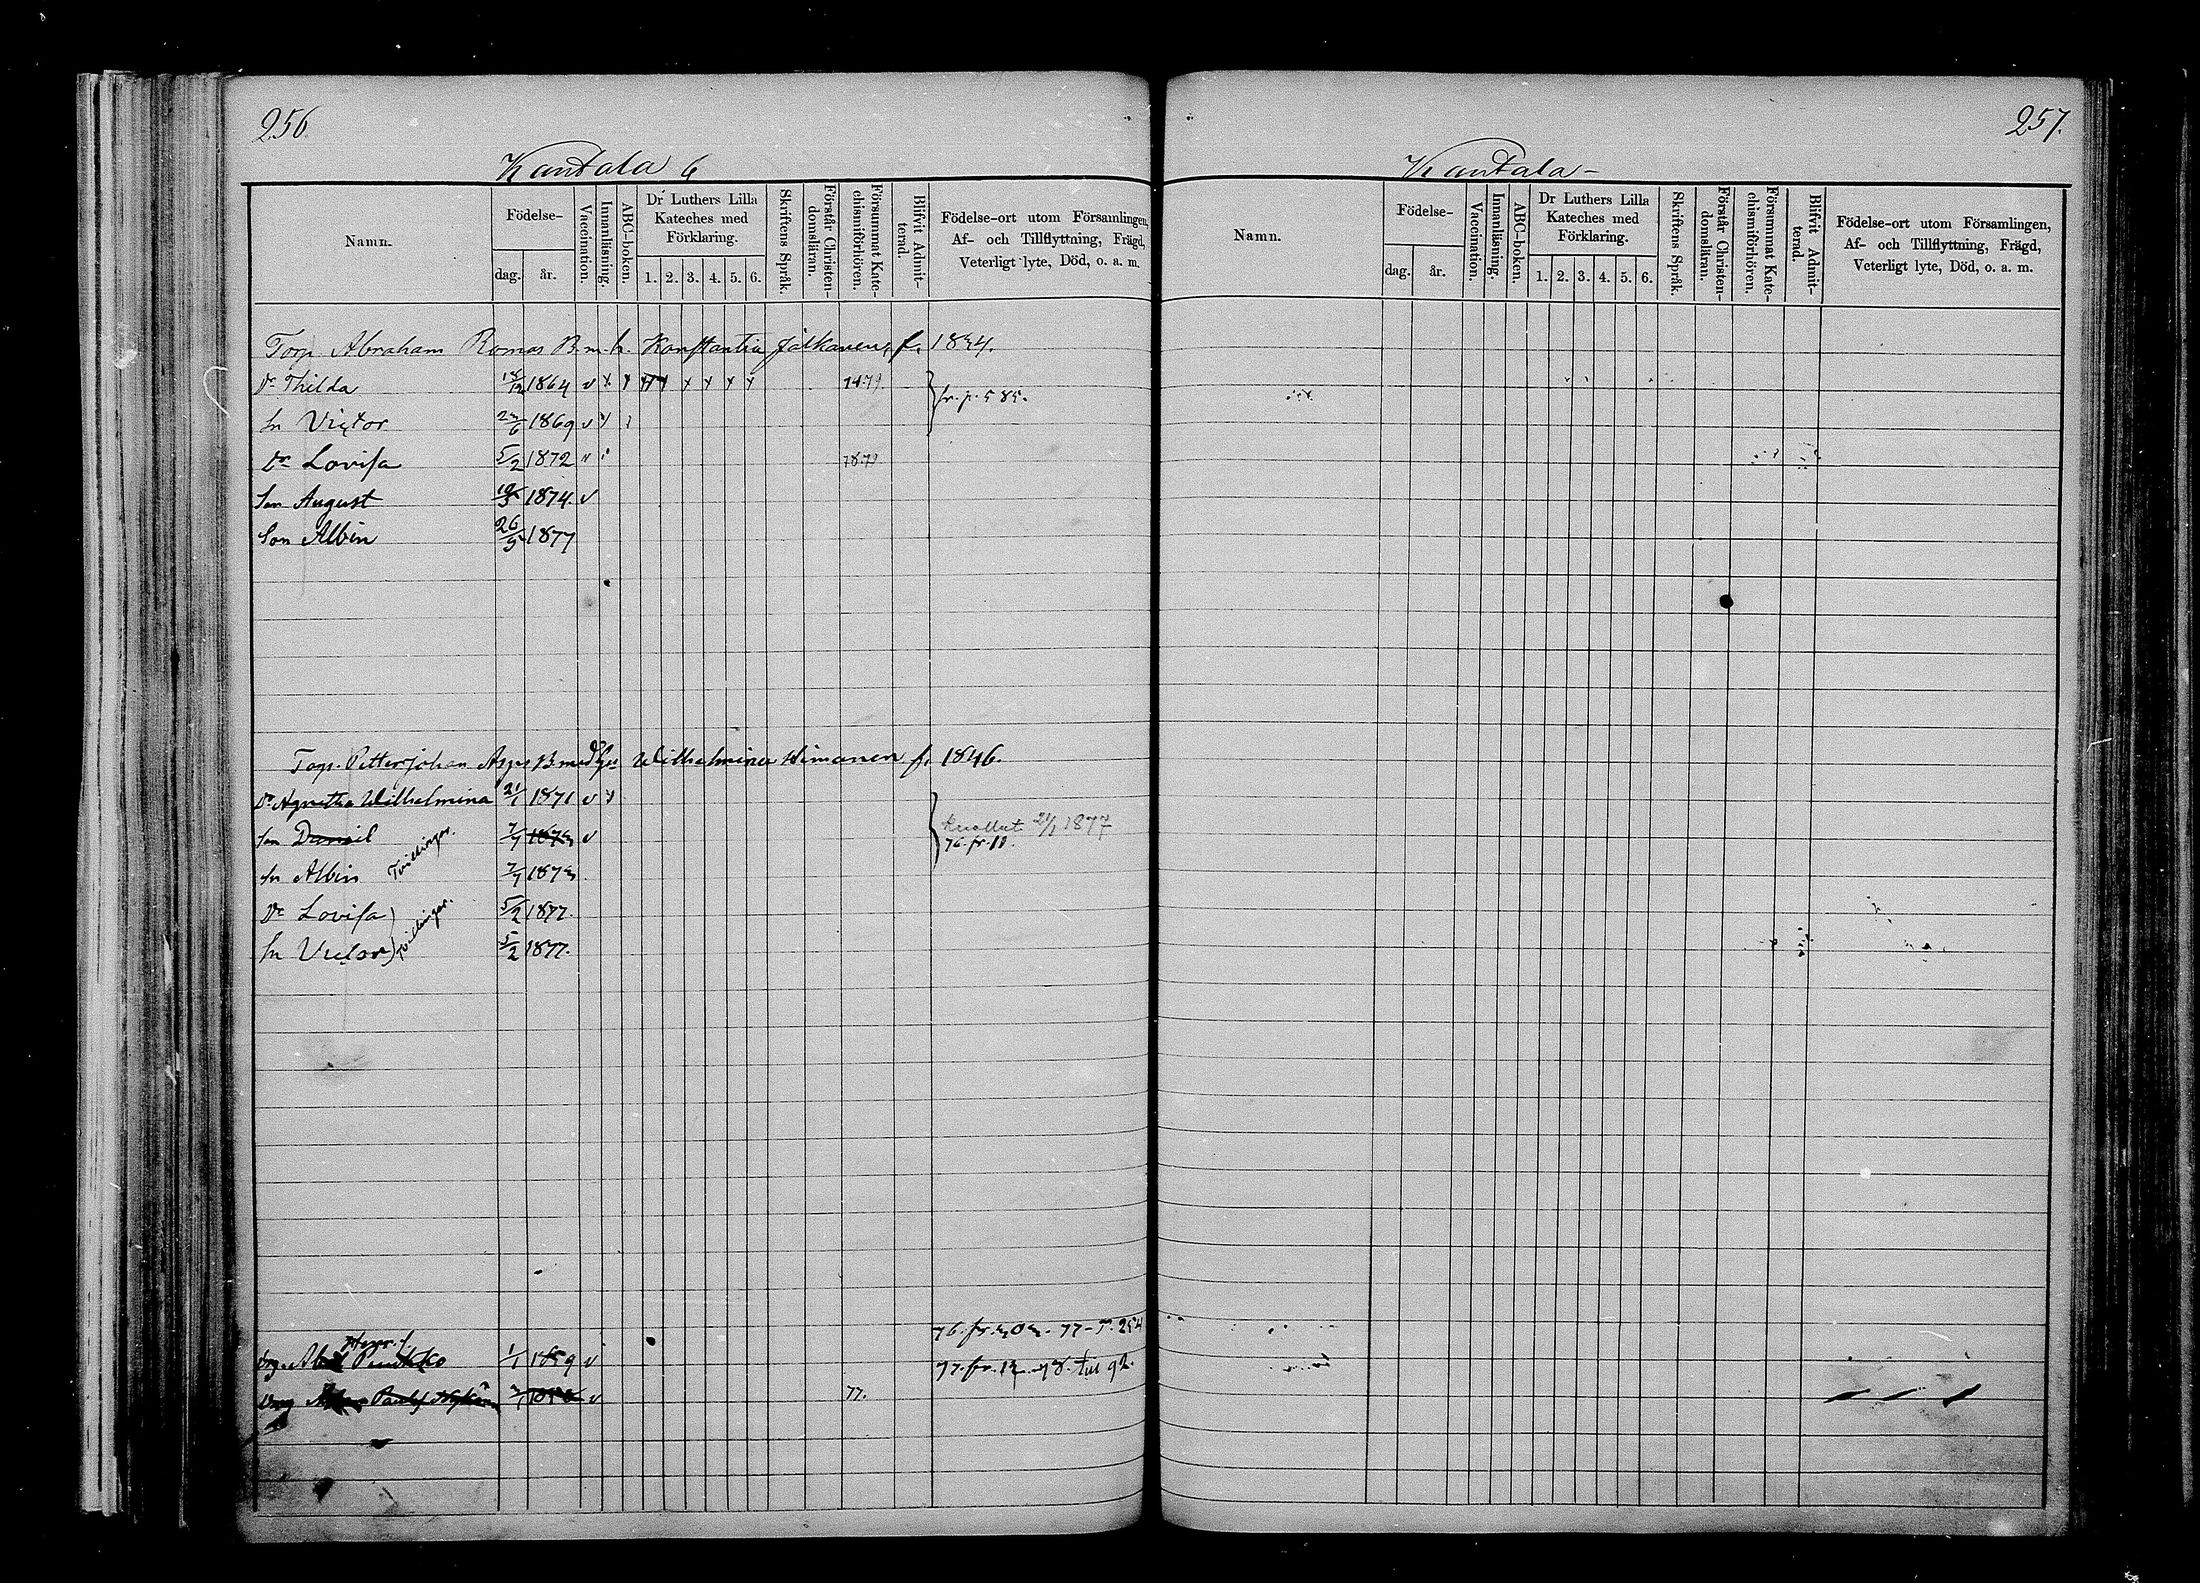 256
Kantala 6
Namn. Födelse- dag. år. Vaccination. Innanläsning. ABC-boken. Dr Luthers Lilla Kateches med Förklaring. 1. 2. 3. 4. 5. 6. Skriftens Språk. Förstår Christen-domsläran. Försummat Kate-chismiförhören. Blifvit Admit-terad. Födelse-ort utom Församlingen, Af- och Tillflyttning, Frägd, Veterligt lyte, Död, o. a. m.
Torp Abraham Romas B. m. h. Konstantia Jalkanen, f. 1834.
Dr Thilda 18/12 1864 v x x x x x x x x 14.79
fr. p. 585.
Sn Victor 23/6 1869 v
Dr Lovisa 5/2 1872 78.79
Son August 1874. v
Son Albin 26/5 1877
Torp. Petter Johan B m d Wilhelmina Himanen f. 1846.
Dr Agnetha Wilhelmina 21/1 1871 v
Sn Daniel 7/7 1873 v
Tvillingar.
21/1 1877
76. fr. 11.
Sn Albin 7/7 1873
Dr Lovisa 5/2 1877.
Tvillingar.
Sn Victor 5/2 1877.
76. fr. 303. 77 - p. 254
1/1 1859 v 77. fr. 13 78. till 92.
v 77.
257.
Kantala
Namn. Födelse- dag. år. Vaccination. Innanläsning. ABC-boken. Dr Luthers Lilla Kateches med Förklaring. 1. 2. 3. 4. 5. 6. Skriftens Språk. Förstår Christen-domsläran. Försummat Kate-chismiförhören. Blifvit Admit-terad. Födelse-ort utom Församlingen, Af- och Tillflyttning, Frägd, Veterligt lyte, Död, o. a. m.